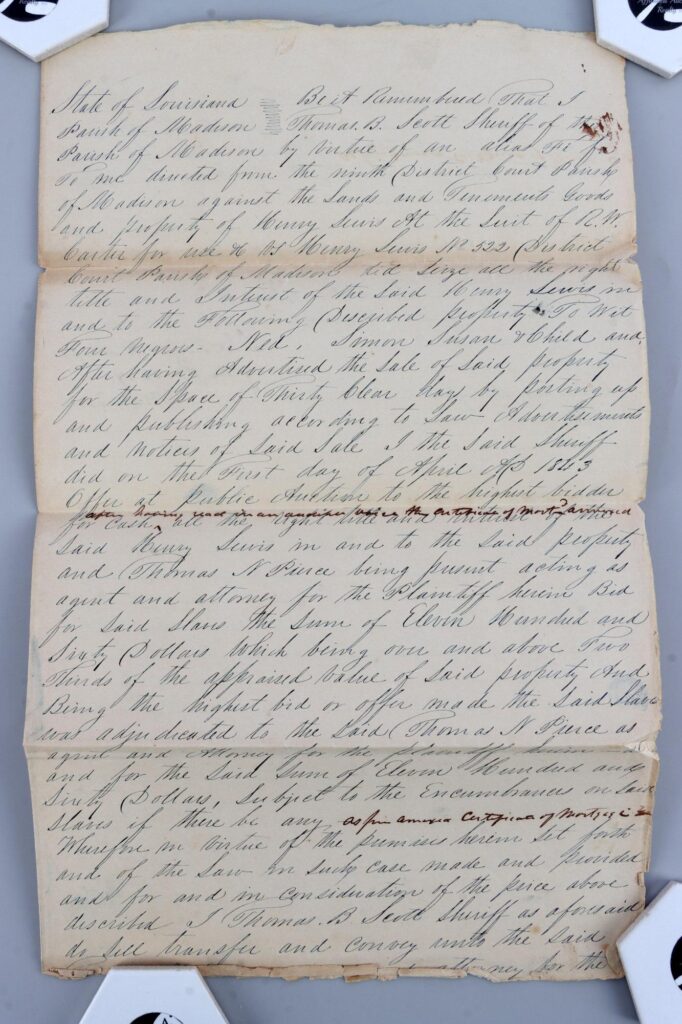 State of Louisiana Be it Remembered That I
Parish of Madison Thomas. B. Scott Sheriff of the
Parish of Madison by Virtue of an alias Fi fa
To me directed from the ninth District Court Parish
of Madison against the Lands and Tenements Goods
and property of Henry Lewis At the Suit of R. W.
Carter for use &c vs Henry Lewis No 522 District
Court Parish of Madison did Seize all the right
title and Interest of the Said Henry Lewis in
and to the Following Described property To Wit
Four Negros - Ned, Simon Susan & Child and,
After having Advertised the Sale of Said property
for the Space of Thirty Clear days by posting up
and publishing according to Law Advertisements
and notices of Said Sale I the Said Sheriff
did on the First day of April AD 1843
Offer at Public Auction to the highest bidder
after having read in an audible voice the Certificate of Mortg annexed
for Cash, all the right title and interest of the
Said Henry Lewis in and to the Said property
and Thomas N Pierce being present acting as
agent and attorney for the Plaintiff herein Bid
for Said Slaves the Sum of Eleven Hundred and
Sixty Dollars Which being over and above Two
Thirds of the appraised value of Said property And
Being the highest bid or offer made the Said Slaves
was adjudicated to the Said Thomas N Pierce as
agent and Attorney for the plaintiff herein
and for the Said Sum of Eleven Hundred and
Sixty Dollars, Subject to the Encumbrances on Said
Slaves if there be any as per annexed Certificate of Mortgage
Wherefore in Virtue of the premises herein Set forth
and of the Law in Such case made and provided
and for and in Consideration of the price above
described I Thomas. B Scott Sheriff as aforesaid
do Sell transfer and convey unto the Said
attorney for the